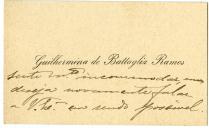 Guilhermina de Battaglia Ramos
sente incommodar, mas
deseja novamente fallar
a V. Ex.ª em sendo possivel.